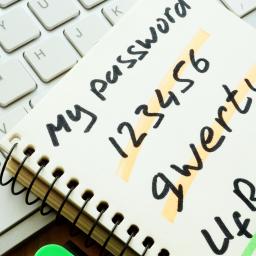 My password
123456
qwerty
UfB